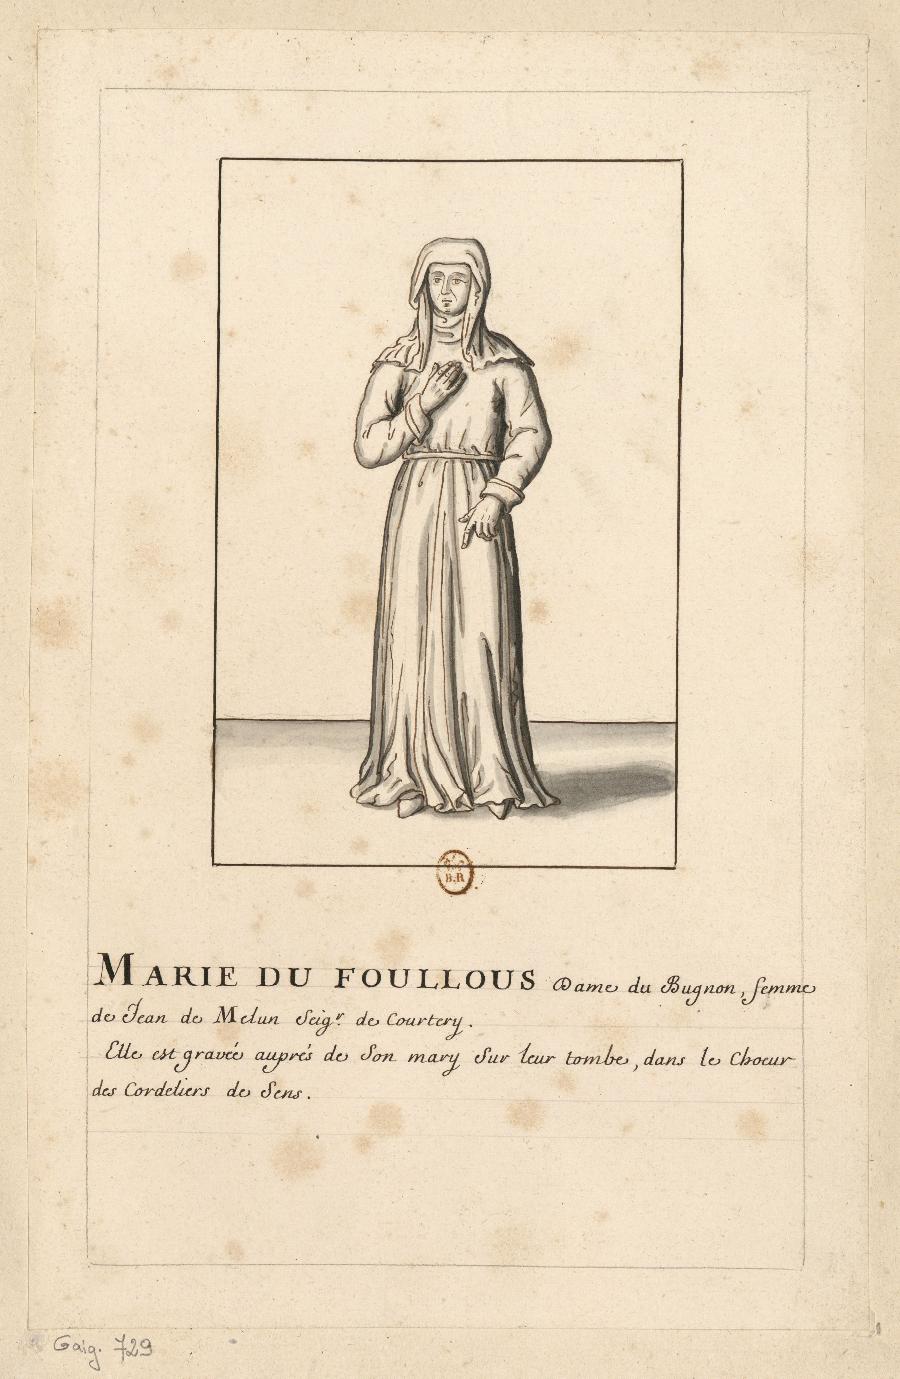 B.R
MARIE DU FOULLOUS Dame du Bugnon, femme
de Jean de Melun Seigr. de Courtery.
Elle est gravée auprés de Son mary Sur leur tombe, dans le Choeur
des Cordeliers de Sens.
Gaig. 729